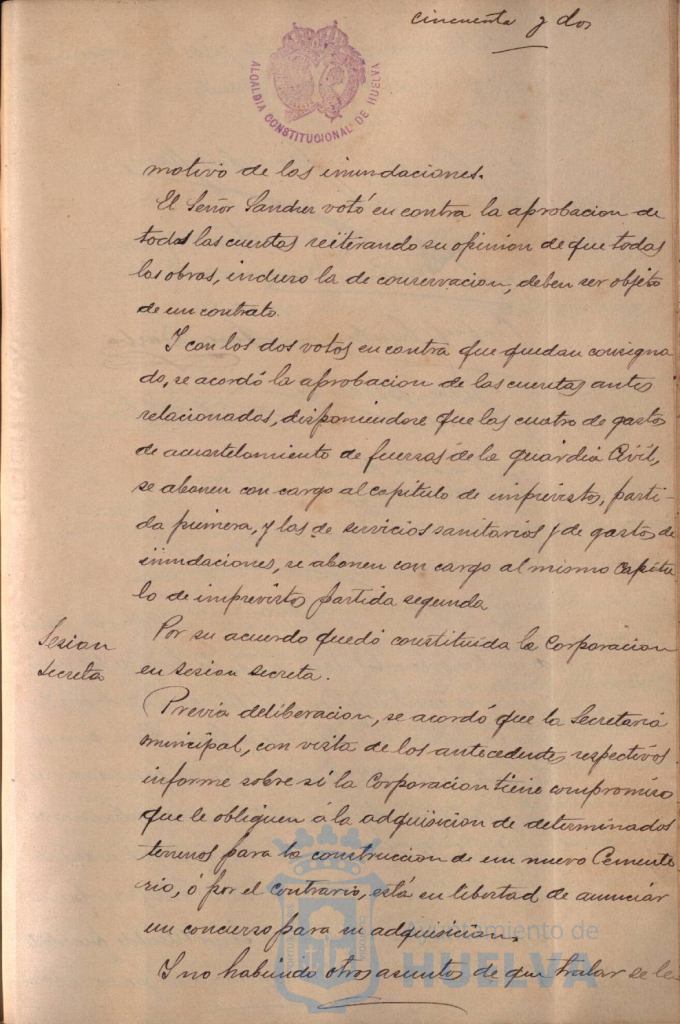 cincuenta y dos
ALCALDIA CONSTITUCIONAL DE HUELVA
motivo de las inundaciones.
El Señor Sanchez votó en contra la aprobacion de
todas las cuentas reiterando su opinion de que todas
las obras, incluso la de conservacion, deben ser objeto
de un contrato.
I con los dos votos en contra que quedan consigna
do, se acordó la aprobacion de las cuentas antes
relacionados, disponiendose que las cuatro de gastos
de acuartelamiento de fuerzas de la guardia Civil,
se abonen con cargo al capitulo de imprevistos, parti-
da primera, y las de servicios sanitarios y de gastos de
inundaciones, se abonen con cargo al mismo Capitu
lo de imprevistos partida segunda
Sesion
secreta
Por su acuerdo quedó constituida la Corporacion
en sesion secreta.
Previa deliberacion, se acordó que la Secretaria
municipal, con vista de los antecedentes respectivos
informe sobre si la Corporacion tiene compromiso
que le obliguen á la adquisicion de determinados
terrenos para la construccion de un nuevo Cemente
rio, ó por el contrario, está en libertad de anunciar
un concurso para su adquisicion.
I no habiendo otros asuntos de que tratar se le-
Ayuntamiento de
HUELVA